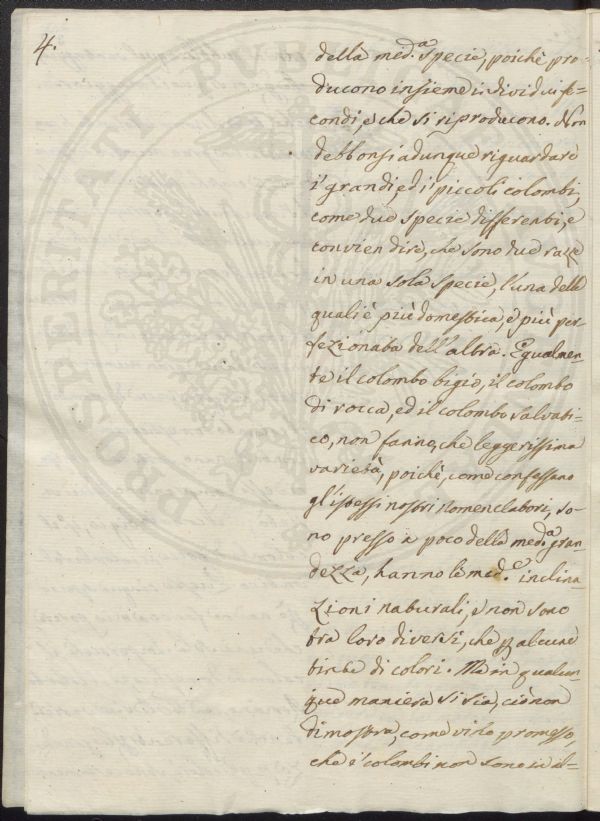 4.
della med.a specie, poichè pro-
ducono insieme individui fe-
condi, e che si riproducono. Non
debbonsi adunque riguardare
i' grandi, ed i' piccoli colombi,
come due specie differenti, e
convien dire, che sono due razze
in una sola specie, l'una delle
quali è più domestica, e più per-
fezionata dell'altra. Egualmen-
te il colombo bigio, il colombo
di rocca, ed il colombo salvati-
co, non fanno, che leggerissima
varietà, poichè, come confessano
gl'istessi nostri nomenclatori, so-
no presso a poco della med.a gran-
dezza, hanno le med.e inclina-
zioni naturali, e non sono
tra loro diversi, che p alcune
tinte di colori. Ma in qualun-
que maniera si sia, ciò non
dimostra, come vi ho promesso,
che i' colombi non sono sì il-
PROSPERITATI PUBLICAE